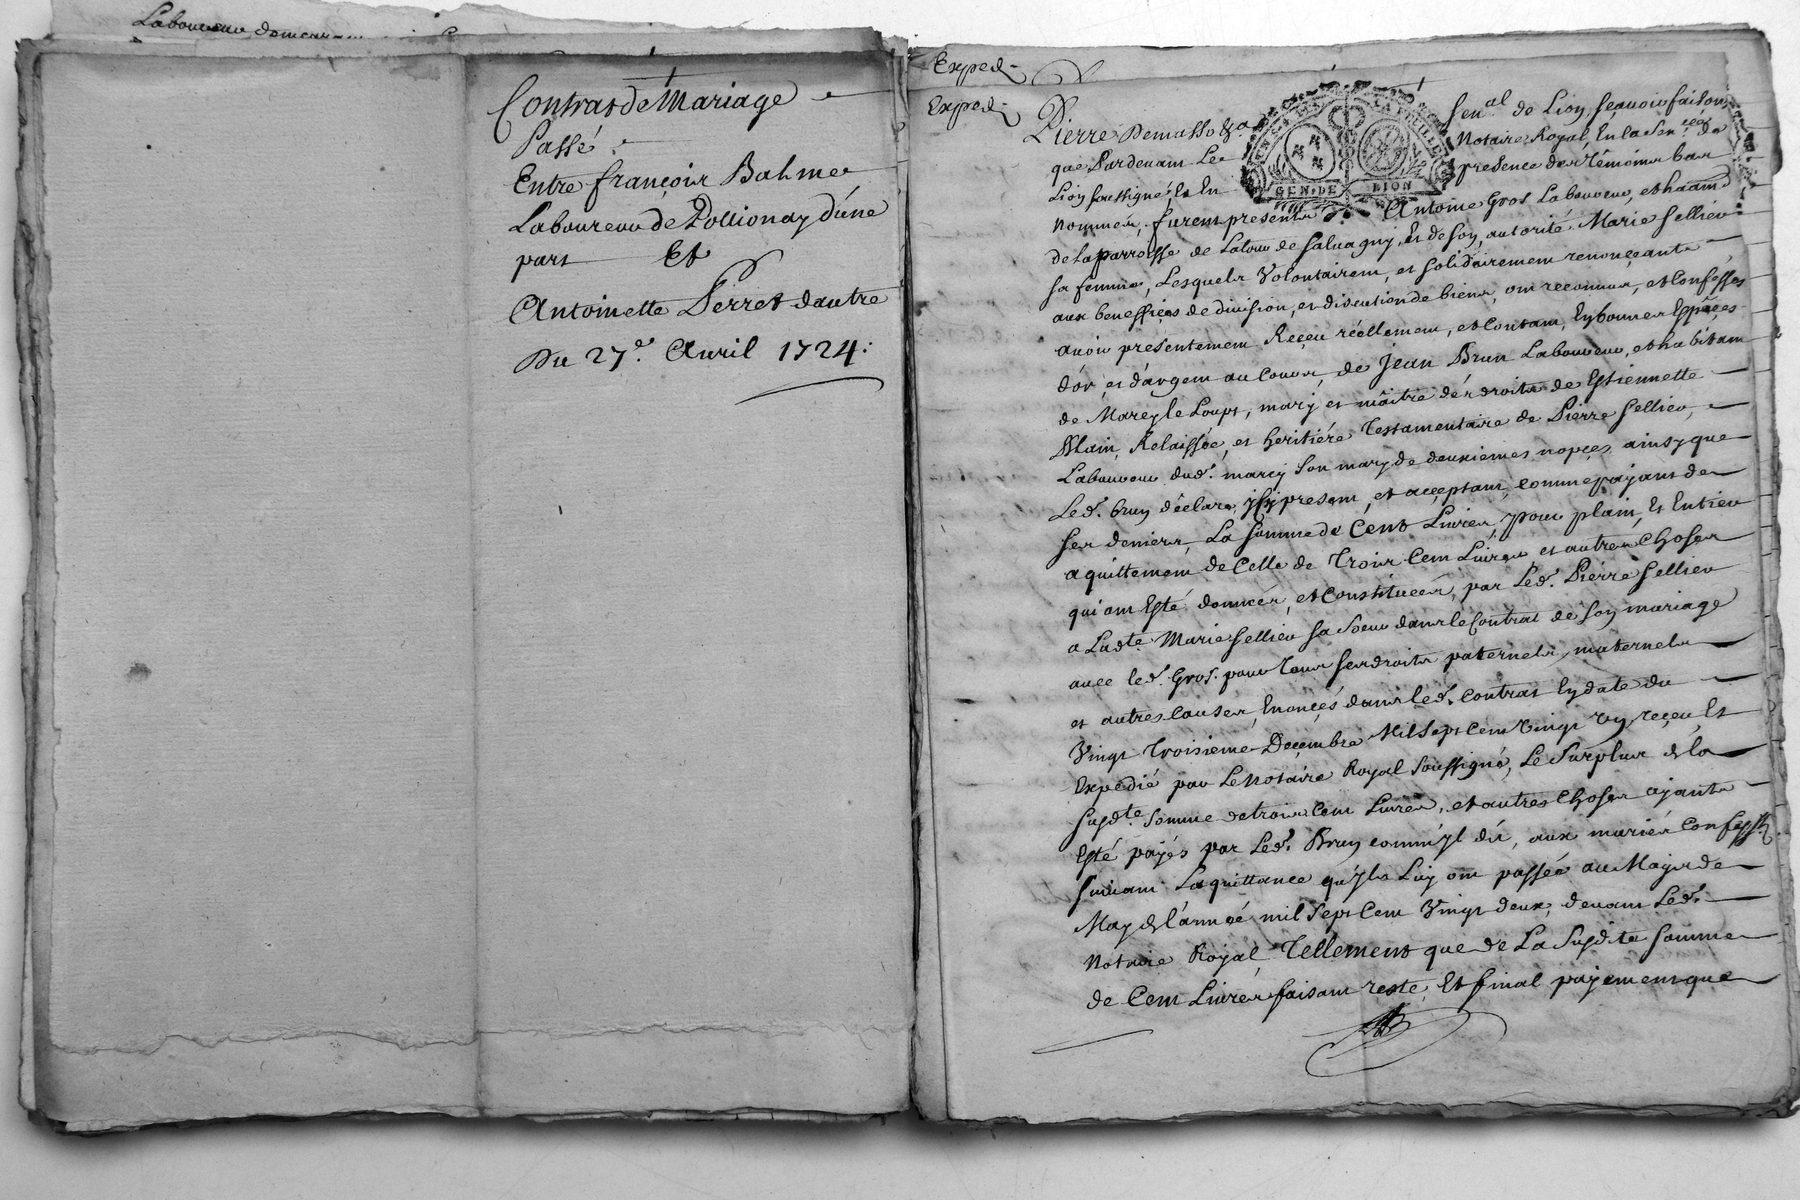 Laboureur demeurant
Contrat de Mariage
Passé
Entre françois Bahmer
Laboureur de Pollionay d'une
part Et
Antoinette Perret dautre
Du 27e. Auril 1724:
Exped.
Exped.
GEN. DE LION
Pierre Demasso &a Senal de Lion sçauoir faisons
que Pardeuant Le Notaire Royal En la Sen.ée de
Lion soussigné, Et En presence des Témoins bas
nommés, furent presents Antoine Gros Laboureur, et habitant
de La parroisse de Latour de Saluagny Et de son autorité Marie Sellier
sa femme, Lesquels Volontairemt, et solidairement renonçants
aux beneffices de diuision, et discution de biens, ont reconnus, et Confessés
auoir présentement Reçeu réellement, et Contant, En bonnes Espèces
d'or, et d'argent au Cours, de Jean Brun Laboureur, et habitant
de Marcy le Loups, mary et maître des droits de Estiennette
Blain, Relaissée, et heritiére Testamentaire de Pierre Sellier,
Laboureur dud. marcy son mary de deuxiemes nopces ainsy que
Led. brun déclare, icy present, et acceptant, comme payant de
ses deniers, La somme de Cent Liures, pour plain, Et Entier
aquittement de Celle de Trois Cent Liures et autres Choses
qui ont Esté données, et Constituées, par Led. Pierre Sellier
a Ladte. Marie Sellier sa soeur dans le Contrat de son mariage
auec led. Gros, pour Tous ses droits paternels, maternels
et autres Causes, Enonçés dans led. Contrat En date du
Vingt Troisieme Decembre Mil Sept Cent Vingt Un, reçeu, Et
Expedié par Le Notaire Royal Soussigné, Le Surplus de la
susdte. somme de trois Cent Liures, et autres Choses ayants
Esté payés par Led. Brun comm'jl dit, aux mariés Confessts.
suiuant La quittance qu'jls Luy ont passée au Mois de
May de l'année mil Sept Cent Vingt deux, deuant Led.
Notaire Royal, Tellement que de La Susdite somme
de Cent Liures faisant reste, Et final payement que